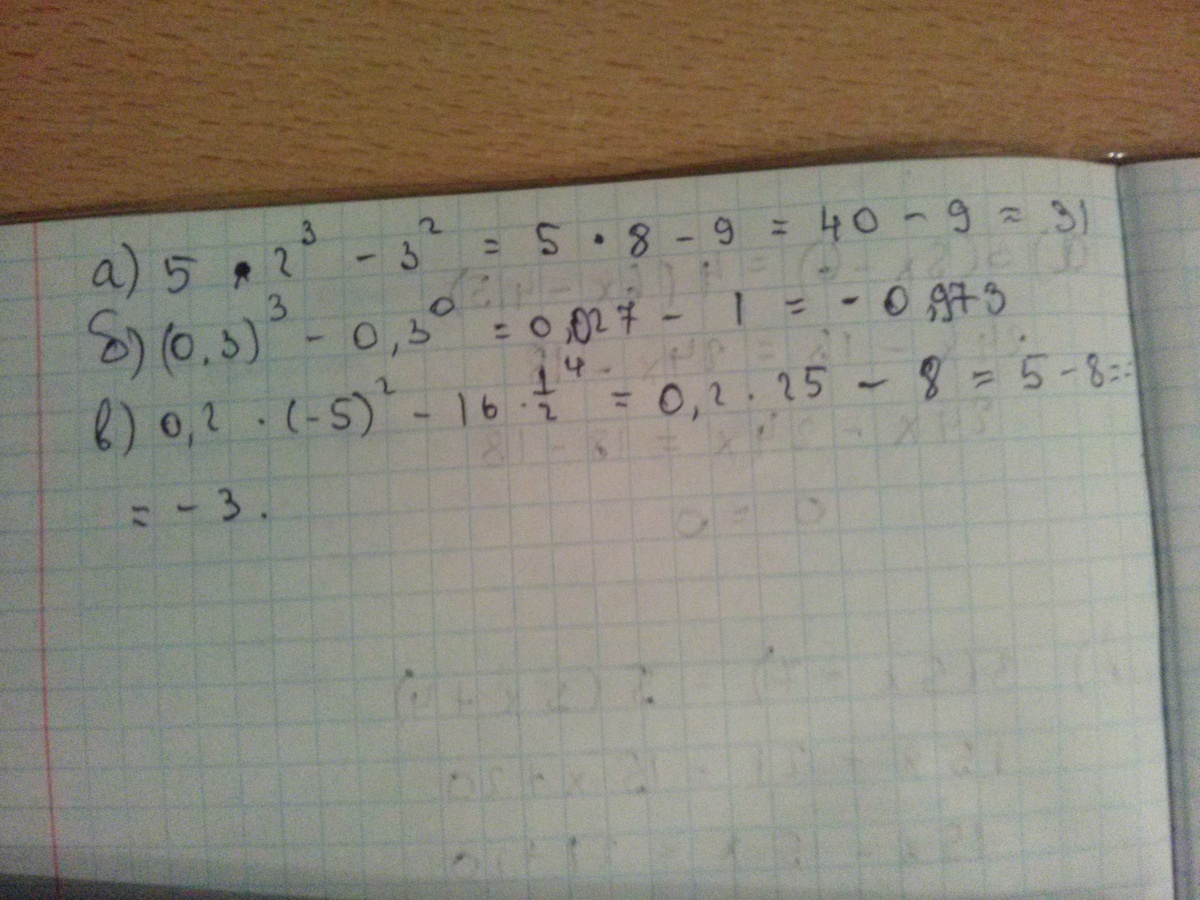 а) 5 • 2³ - 3² = 5 · 8 - 9 = 40 - 9 = 31
б) (0,3)³ - 0,3⁰ = 0,027 - 1 = -0,973
в) 0,2 · (-5)² - 16 · 1/2⁴ = 0,2 · 25 - 8 = 5 - 8 =
= -3.